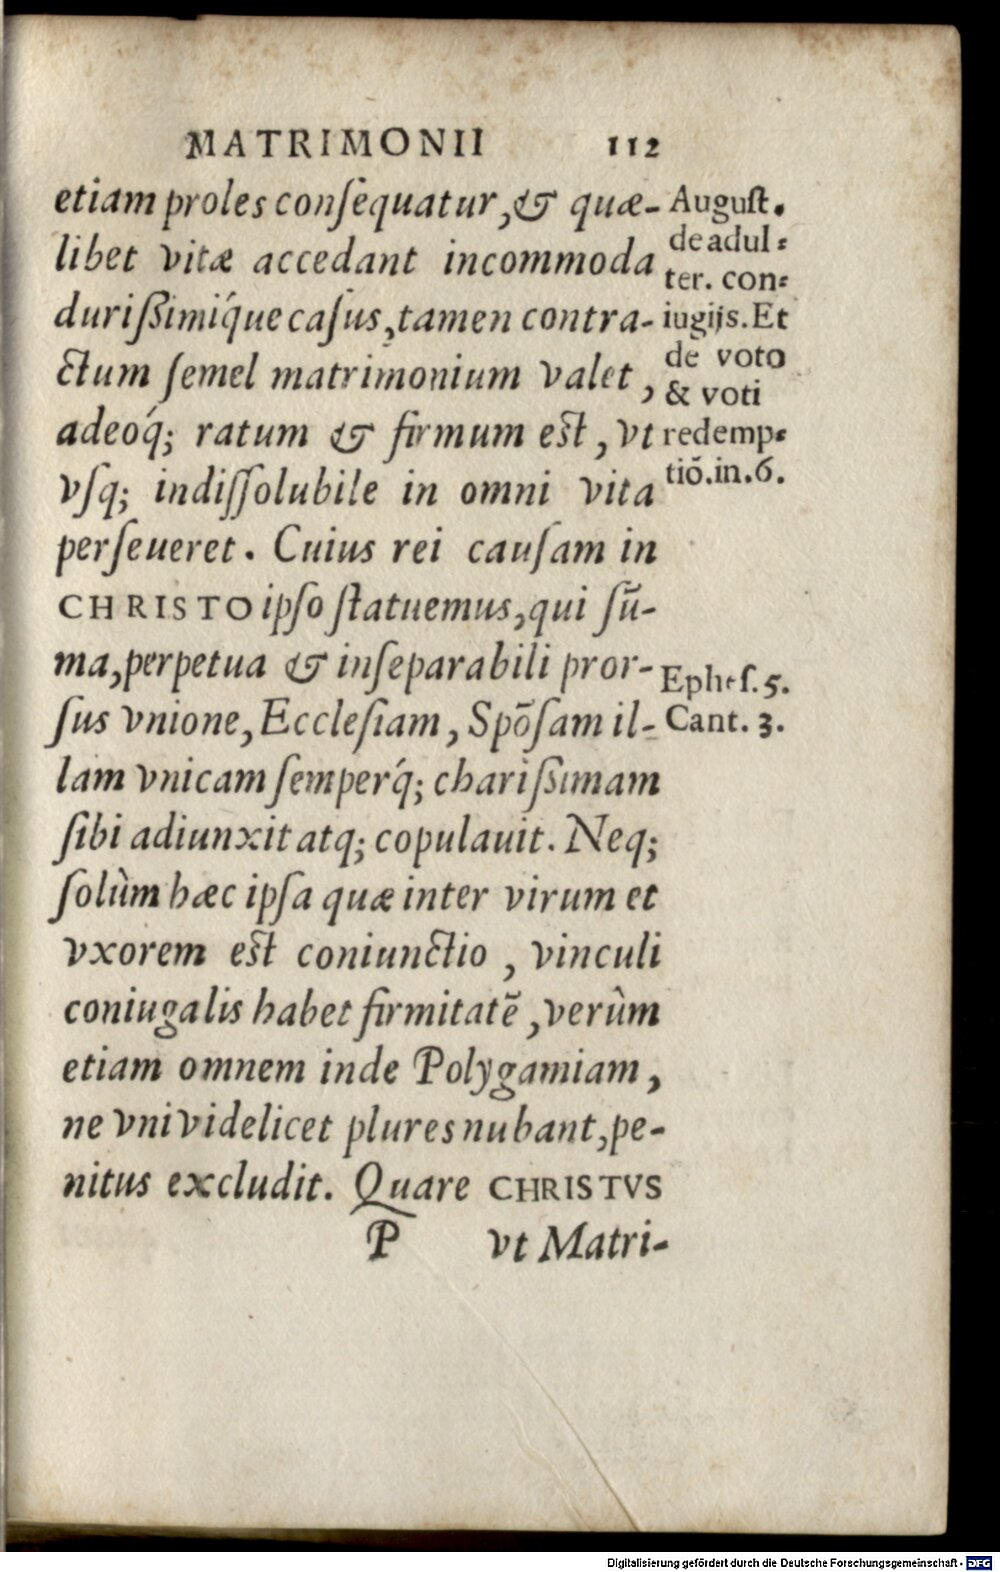 MATRIMONII 112
etiam proles conſequatur, & quæ-
libet vitæ accedant incommoda
durißimiq́ue caſus, tamen contra-
ctum ſemel matrimonium valet,
adeoq́; ratum & firmum eſt, vt
vſq; indiſſolubile in omni vita
perſeueret. Cuius rei cauſam in
CHRISTO ipſo ſtatuemus, qui ſū-
ma, perpetua & inſeparabili pror-
ſus vnione, Eccleſiam, Spōſam il-
lam vnicam ſemperq́; charißimam
ſibi adiunxit atq; copulauit. Neq;
ſolùm hæc ipſa quæ inter virum et
vxorem eſt coniunctio, vinculi
coniugalis habet firmitatē, verùm
etiam omnem inde Polygamiam,
ne vni videlicet plures nubant, pe-
nitus excludit. Quare CHRISTVS
P vt Matri-
Auguſt.
de adul-
ter. con-
iugijs. Et
de voto
& voti
redemp-
tiō. in. 6.
Epheſ. 5.
Cant. 3.
Digitalisierung gefördert durch die Deutsche Forschungsgemeinschaft - DFG